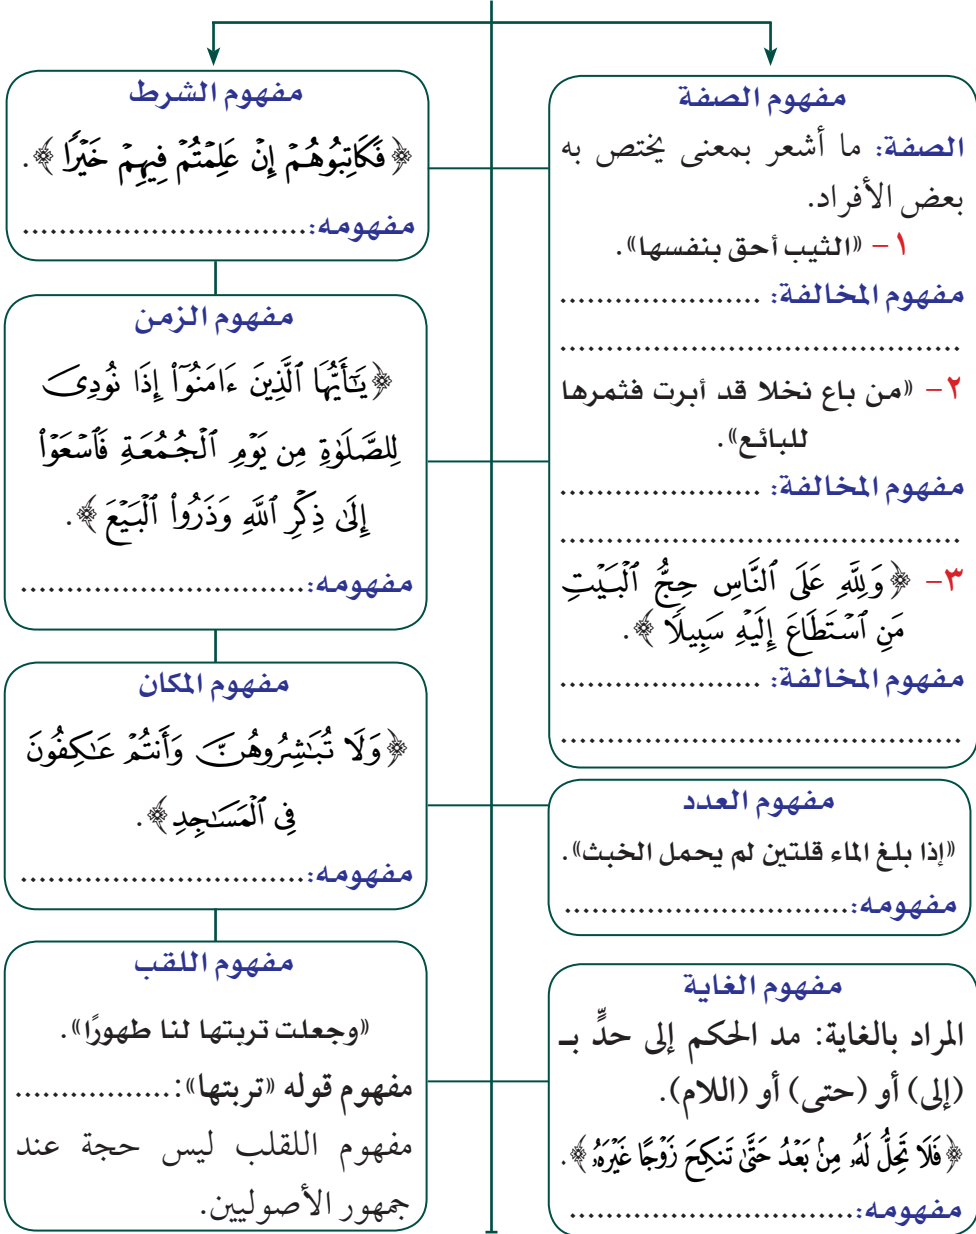 مفهوم الصفة
الصفة: ما أشعر بمعنى يختص به
بعض الأفراد.
١- «الثيب أحق بنفسها».
مفهوم المخالفة: ......................
............................................
٢- «من باع نخلا قد أبرت فثمرها
للبائع».
مفهوم المخالفة: ......................
............................................
٣- ﴿وَلِلَّهِ عَلَى ٱلنَّاسِ حِجُّ ٱلْبَيْتِ
مَنِ ٱسْتَطَاعَ إِلَيْهِ سَبِيلًا﴾.
مفهوم المخالفة: ......................
............................................
مفهوم العدد
«إذا بلغ الماء قلتين لم يحمل الخبث».
مفهومه:...............................
مفهوم الغاية
المراد بالغاية: مد الحكم إلى حدٍّ بـ
(إلى) أو (حتى) أو (اللام).
﴿فَلَا تَحِلُّ لَهُۥ مِنۢ بَعْدُ حَتَّىٰ تَنكِحَ زَوْجًا غَيْرَهُۥ﴾.
مفهومه:...............................
مفهوم الشرط
﴿فَكَاتِبُوهُمْ إِنْ عَلِمْتُمْ فِيهِمْ خَيْرًا﴾.
مفهومه:...............................
مفهوم الزمن
﴿يَـٰٓأَيُّهَا ٱلَّذِينَ ءَامَنُوٓا۟ إِذَا نُودِىَ
لِلصَّلَوٰةِ مِن يَوْمِ ٱلْجُمُعَةِ فَٱسْعَوْا۟
إِلَىٰ ذِكْرِ ٱللَّهِ وَذَرُوا۟ ٱلْبَيْعَ﴾.
مفهومه:...............................
مفهوم المكان
﴿وَلَا تُبَـٰشِرُوهُنَّ وَأَنتُمْ عَـٰكِفُونَ
فِى ٱلْمَسَـٰجِدِ﴾.
مفهومه:...............................
مفهوم اللقب
«وجعلت تربتها لنا طهورًا».
مفهوم قوله «تربتها»:.................
مفهوم اللقلب ليس حجة عند
جمهور الأصوليين.